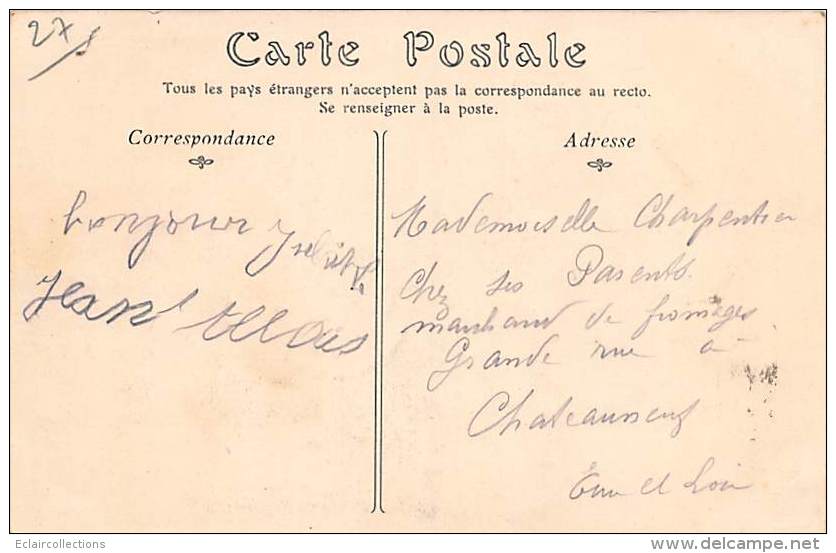 Carte Postale
Tous les pays étrangers n'acceptent pas la correspondance au recto.
Se renseigner à la poste.
Correspondance
Adresse
bonjour
Jean Allais
Mademoiselle Charpentier
Chez ses Parents
marchand de fromages
Grande rue à
Chateauneuf
Eure et Loir
Eclaircollections
delcampe.net